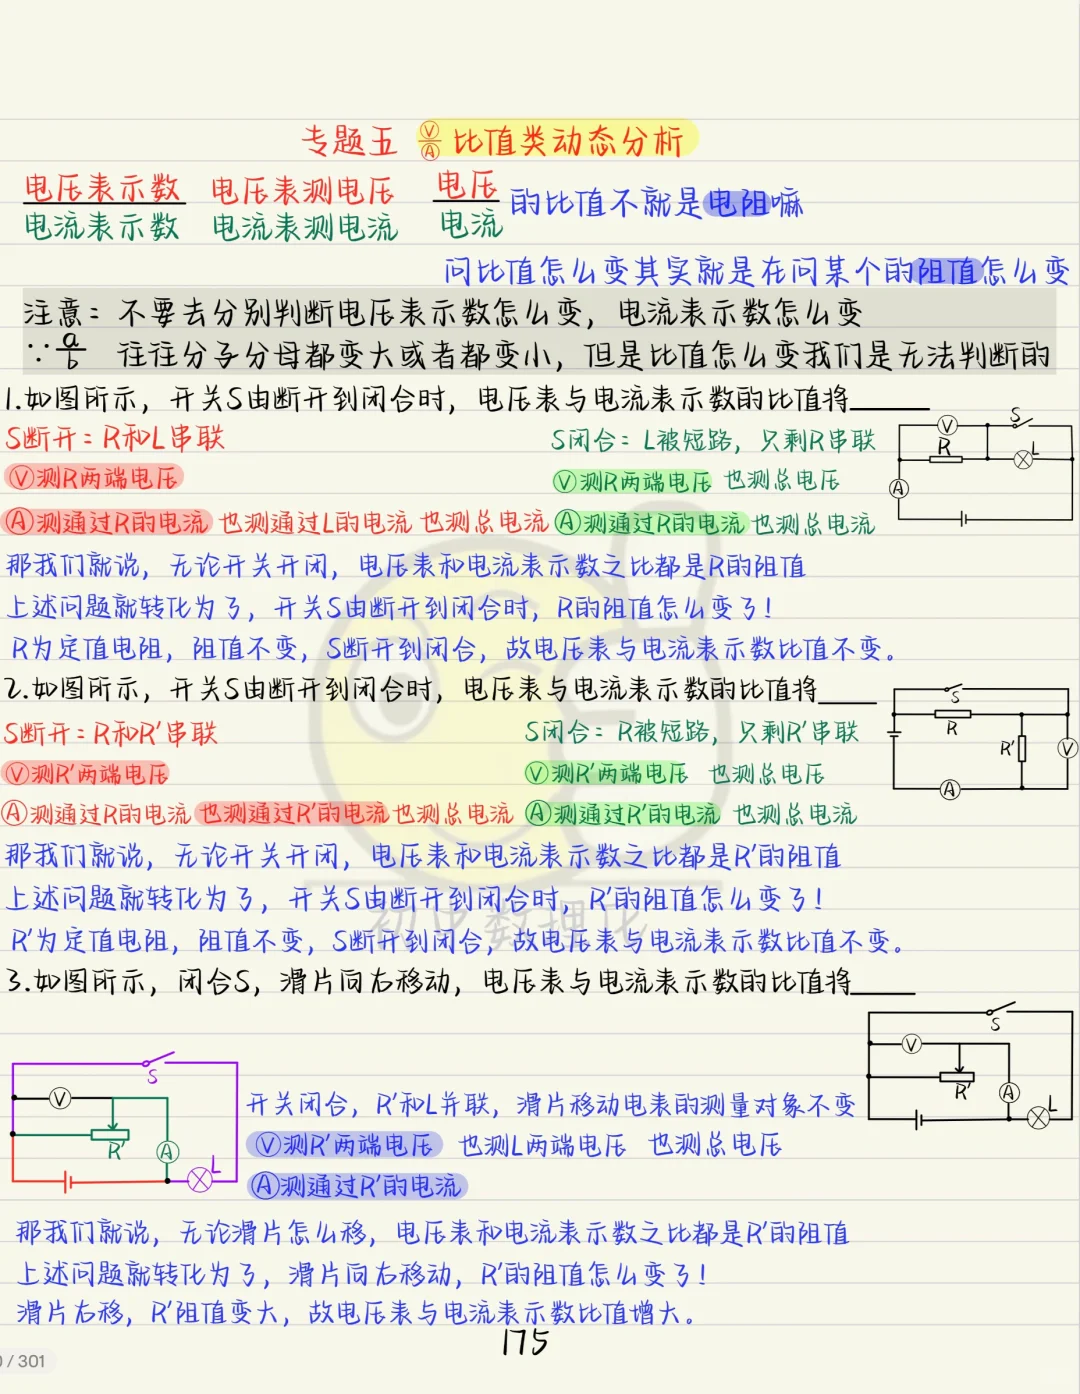 专题五 Ⓥ/Ⓐ 比值类动态分析
电压表示数 电压表测电压 电压
电流表示数 电流表测电流 电流 的比值不就是电阻嘛
问比值怎么变其实就是在问某个的阻值怎么变
注意：不要去分别判断电压表示数怎么变，电流表示数怎么变
∵a/b 往往分子分母都变大或者都变小，但是比值怎么变我们是无法判断的
1.如图所示，开关S由断开到闭合时，电压表与电流表示数的比值将______
S断开：R和L串联 S闭合：L被短路，只剩R串联
Ⓥ测R两端电压 Ⓥ测R两端电压 也测总电压
Ⓐ测通过R的电流 也测通过L的电流 也测总电流 Ⓐ测通过R的电流 也测总电流
V S R L A
那我们就说，无论开关开闭，电压表和电流表示数之比都是R的阻值
上述问题就转化为了，开关S由断开到闭合时，R的阻值怎么变了！
R为定值电阻，阻值不变，S断开到闭合，故电压表与电流表示数比值不变。
2.如图所示，开关S由断开到闭合时，电压表与电流表示数的比值将____
S断开：R和R'串联 S闭合：R被短路，只剩R'串联
Ⓥ测R'两端电压 Ⓥ测R'两端电压 也测总电压
Ⓐ测通过R的电流 也测通过R'的电流 也测总电流 Ⓐ测通过R'的电流 也测总电流
S R R' V A
那我们就说，无论开关开闭，电压表和电流表示数之比都是R'的阻值
上述问题就转化为了，开关S由断开到闭合时，R'的阻值怎么变了！
R'为定值电阻，阻值不变，S断开到闭合，故电压表与电流表示数比值不变。
初中数理化
3.如图所示，闭合S，滑片向右移动，电压表与电流表示数的比值将____
S V R' A L
S V R' A L
开关闭合，R'和L并联，滑片移动电表的测量对象不变
Ⓥ测R'两端电压 也测L两端电压 也测总电压
Ⓐ测通过R'的电流
那我们就说，无论滑片怎么移，电压表和电流表示数之比都是R'的阻值
上述问题就转化为了，滑片向右移动，R'的阻值怎么变了！
滑片右移，R'阻值变大，故电压表与电流表示数比值增大。
175
/ 301